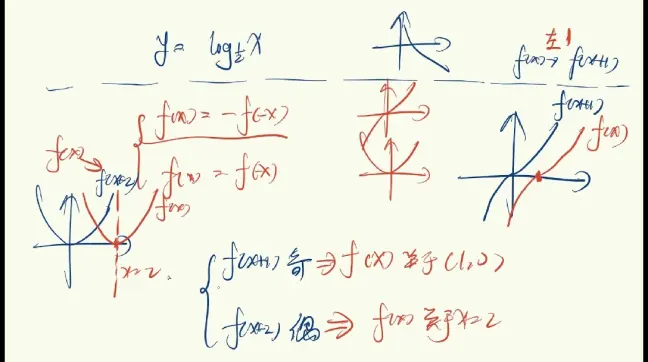 y = log½x
左1
f(x) → f(x+1)
f(x) = -f(-x)
f(x) = f(-x)
f(x)
f(x+2)
f(x)
x=2
f(x+1)
f(x)
f(x+1) 奇 ⇒ f(x) 关于(1,0)
f(x+2) 偶 ⇒ f(x) 关于x=2